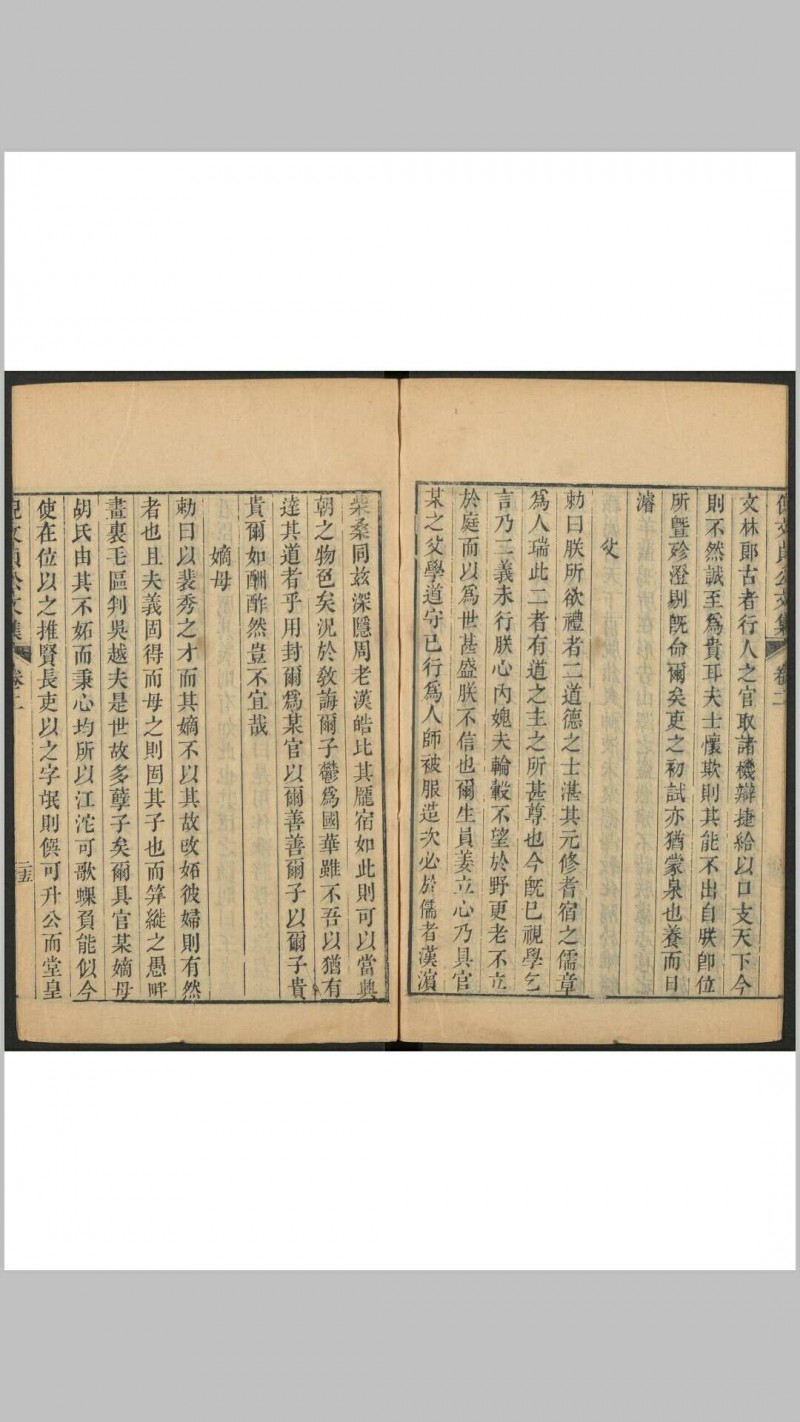 文公文集 卷二
文林郎古者行人之官取諸機辯捷給以口支天下今
則不然誠至爲貴耳夫士懷欺則其能不出自朕卽位
所曁殄澄剔旣命爾矣吏之初試亦猶蒙泉也養而日
濬
父
勅曰朕所欲禮者二道德之士湛其元修耆宿之儒章
爲人瑞此二者有道之主之所甚尊也今旣巳視學乞
言乃二義未行朕心內媿夫輪轂不望於野更老不立
於庭而以爲世甚盛朕不信也爾生員姜立心乃具官
某之父學道守已行爲人師被服造次必於儒者漢濱
柴桑同玆深隱周老漢皓比其龐宿如此則可以當典
朝之物色矣況於敎誨爾子鬱爲國華雖不吾以猶有
達其道者乎用封爾爲某官以爾善善爾子以爾子貴
貴爾如酬酢然豈不宜哉
嫡母
勅曰以裴秀之才而其嫡不以其故攺妬彼婦則有然
者也且夫義固得而母之則固其子也而笄縰之愚畔
晝裏毛區刳吳越夫是世故多孽子矣爾具官某嫡母
胡氏由其不妬而秉心均所以江沱可歌螺負能似今
使在位以之推賢長吏以之字氓則僎可升公而堂皇
倪文貞公文集 卷二 二五